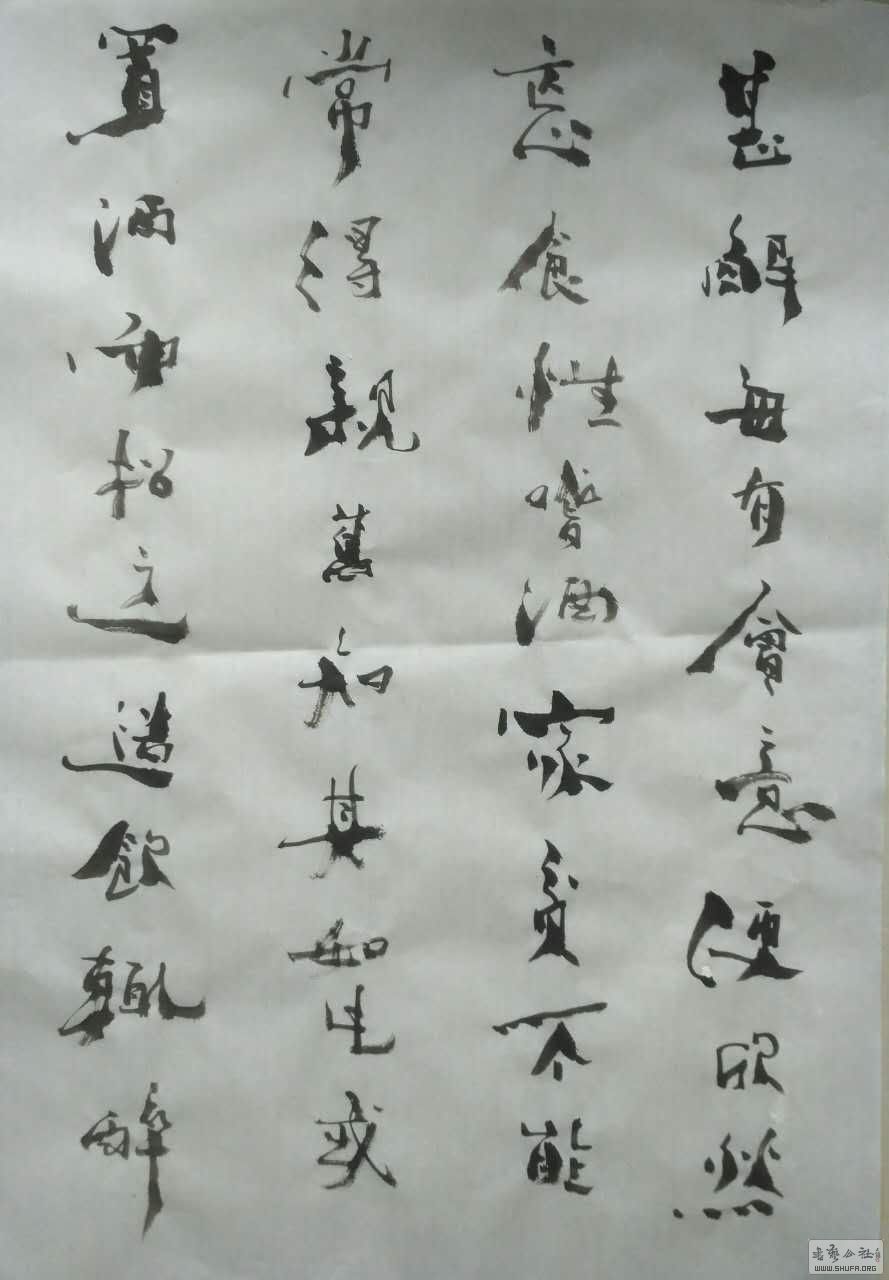 甚解每有會意便欣然
忘食性嗜酒家貧不能
常得親舊知其如此或
置酒而招之造飲輒醉
书艺公社
WWW.SHUFA.ORG